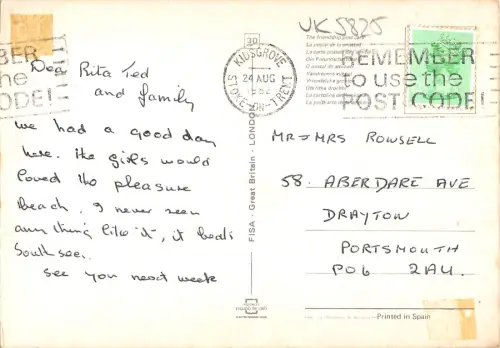 UK5825
30
KIDSGROVE
24 AUG
STOKE-ON-TRENT
BER
the
CODE!
REMEMBER
to use the
POST CODE!
Dear Rita Ted
and family
we had a good day
here. the girls would
loved the pleasure
Beach. I never seen
anything like it, it beats
South sea.
see you next week
MR & MRS ROWSELL
58. ABERDARE AVE
DRAYTON
PORTSMOUTH
PO6 2AU.
FISA - Great Britain - LONDON
Printed in Spain